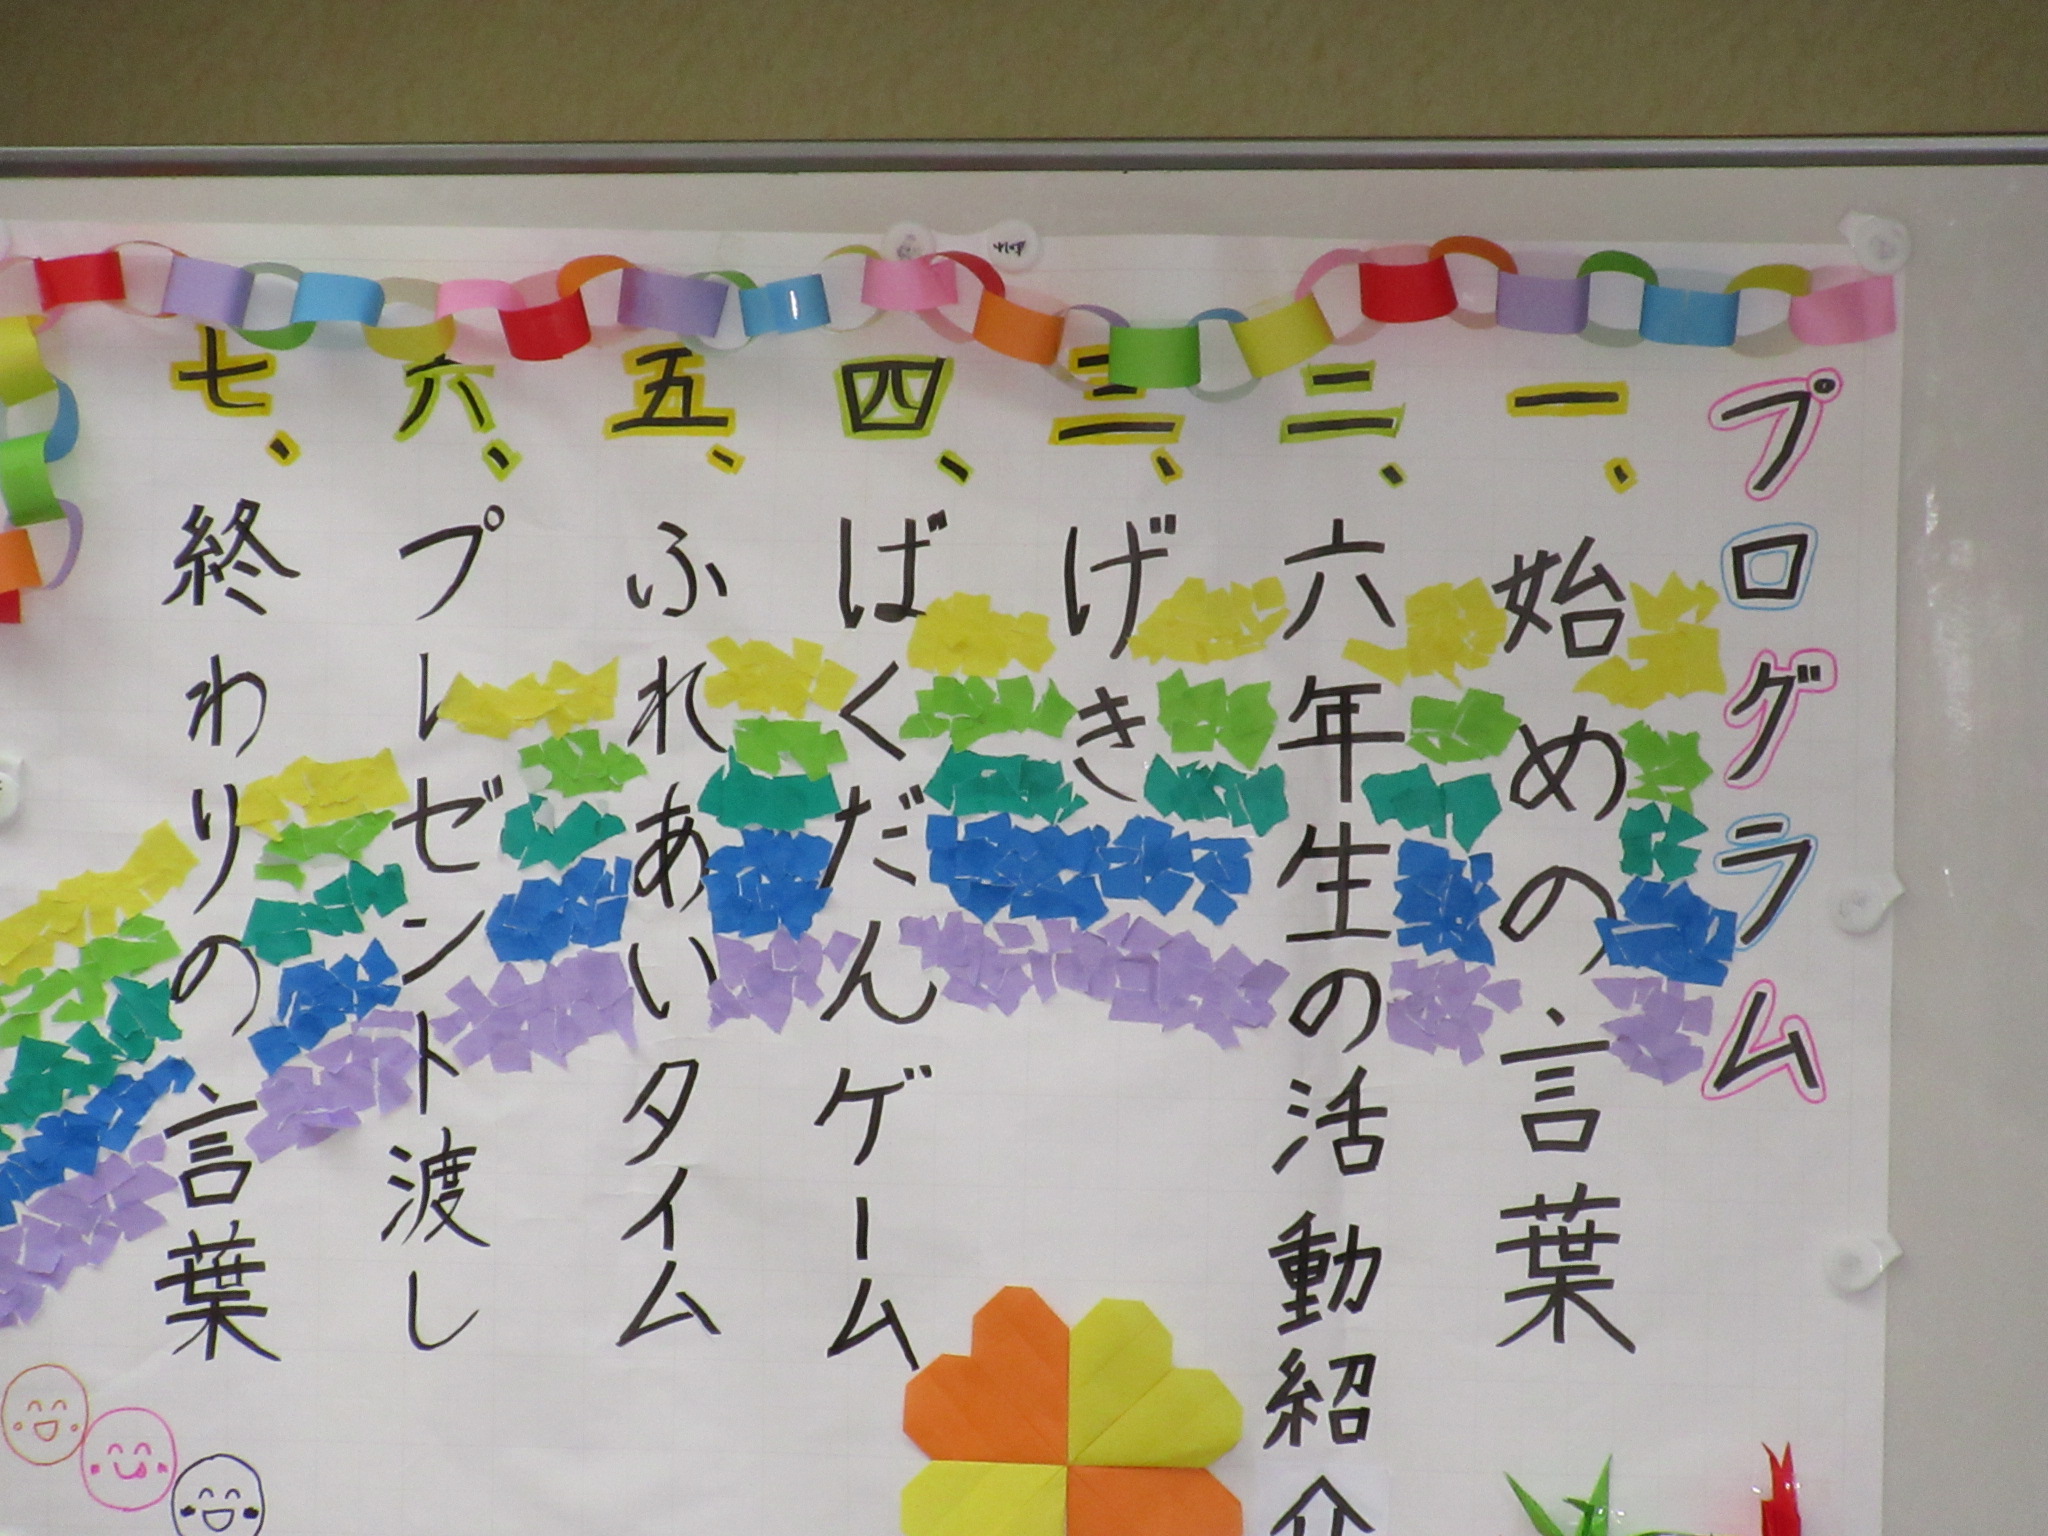 プログラム
一、始めの言葉
二、六年生の活動紹介
三、げき
四、ばくだんゲーム
五、ふれあいタイム
六、プレゼント渡し
七、終わりの言葉